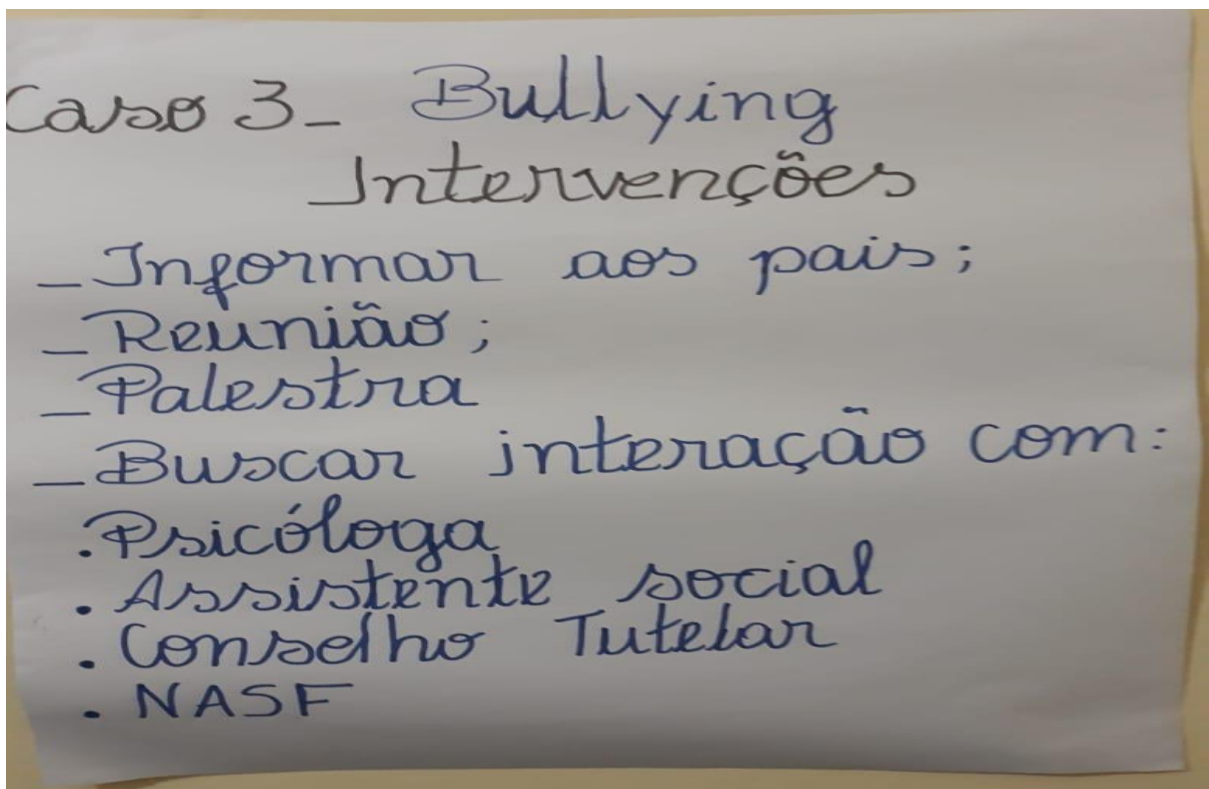 Caso 3_ Bullying
Intervenções
_Informar aos pais;
_Reunião;
_Palestra
_Buscar interação com:
.Psicóloga
. Assistente social
. Conselho Tutelar
. NASF